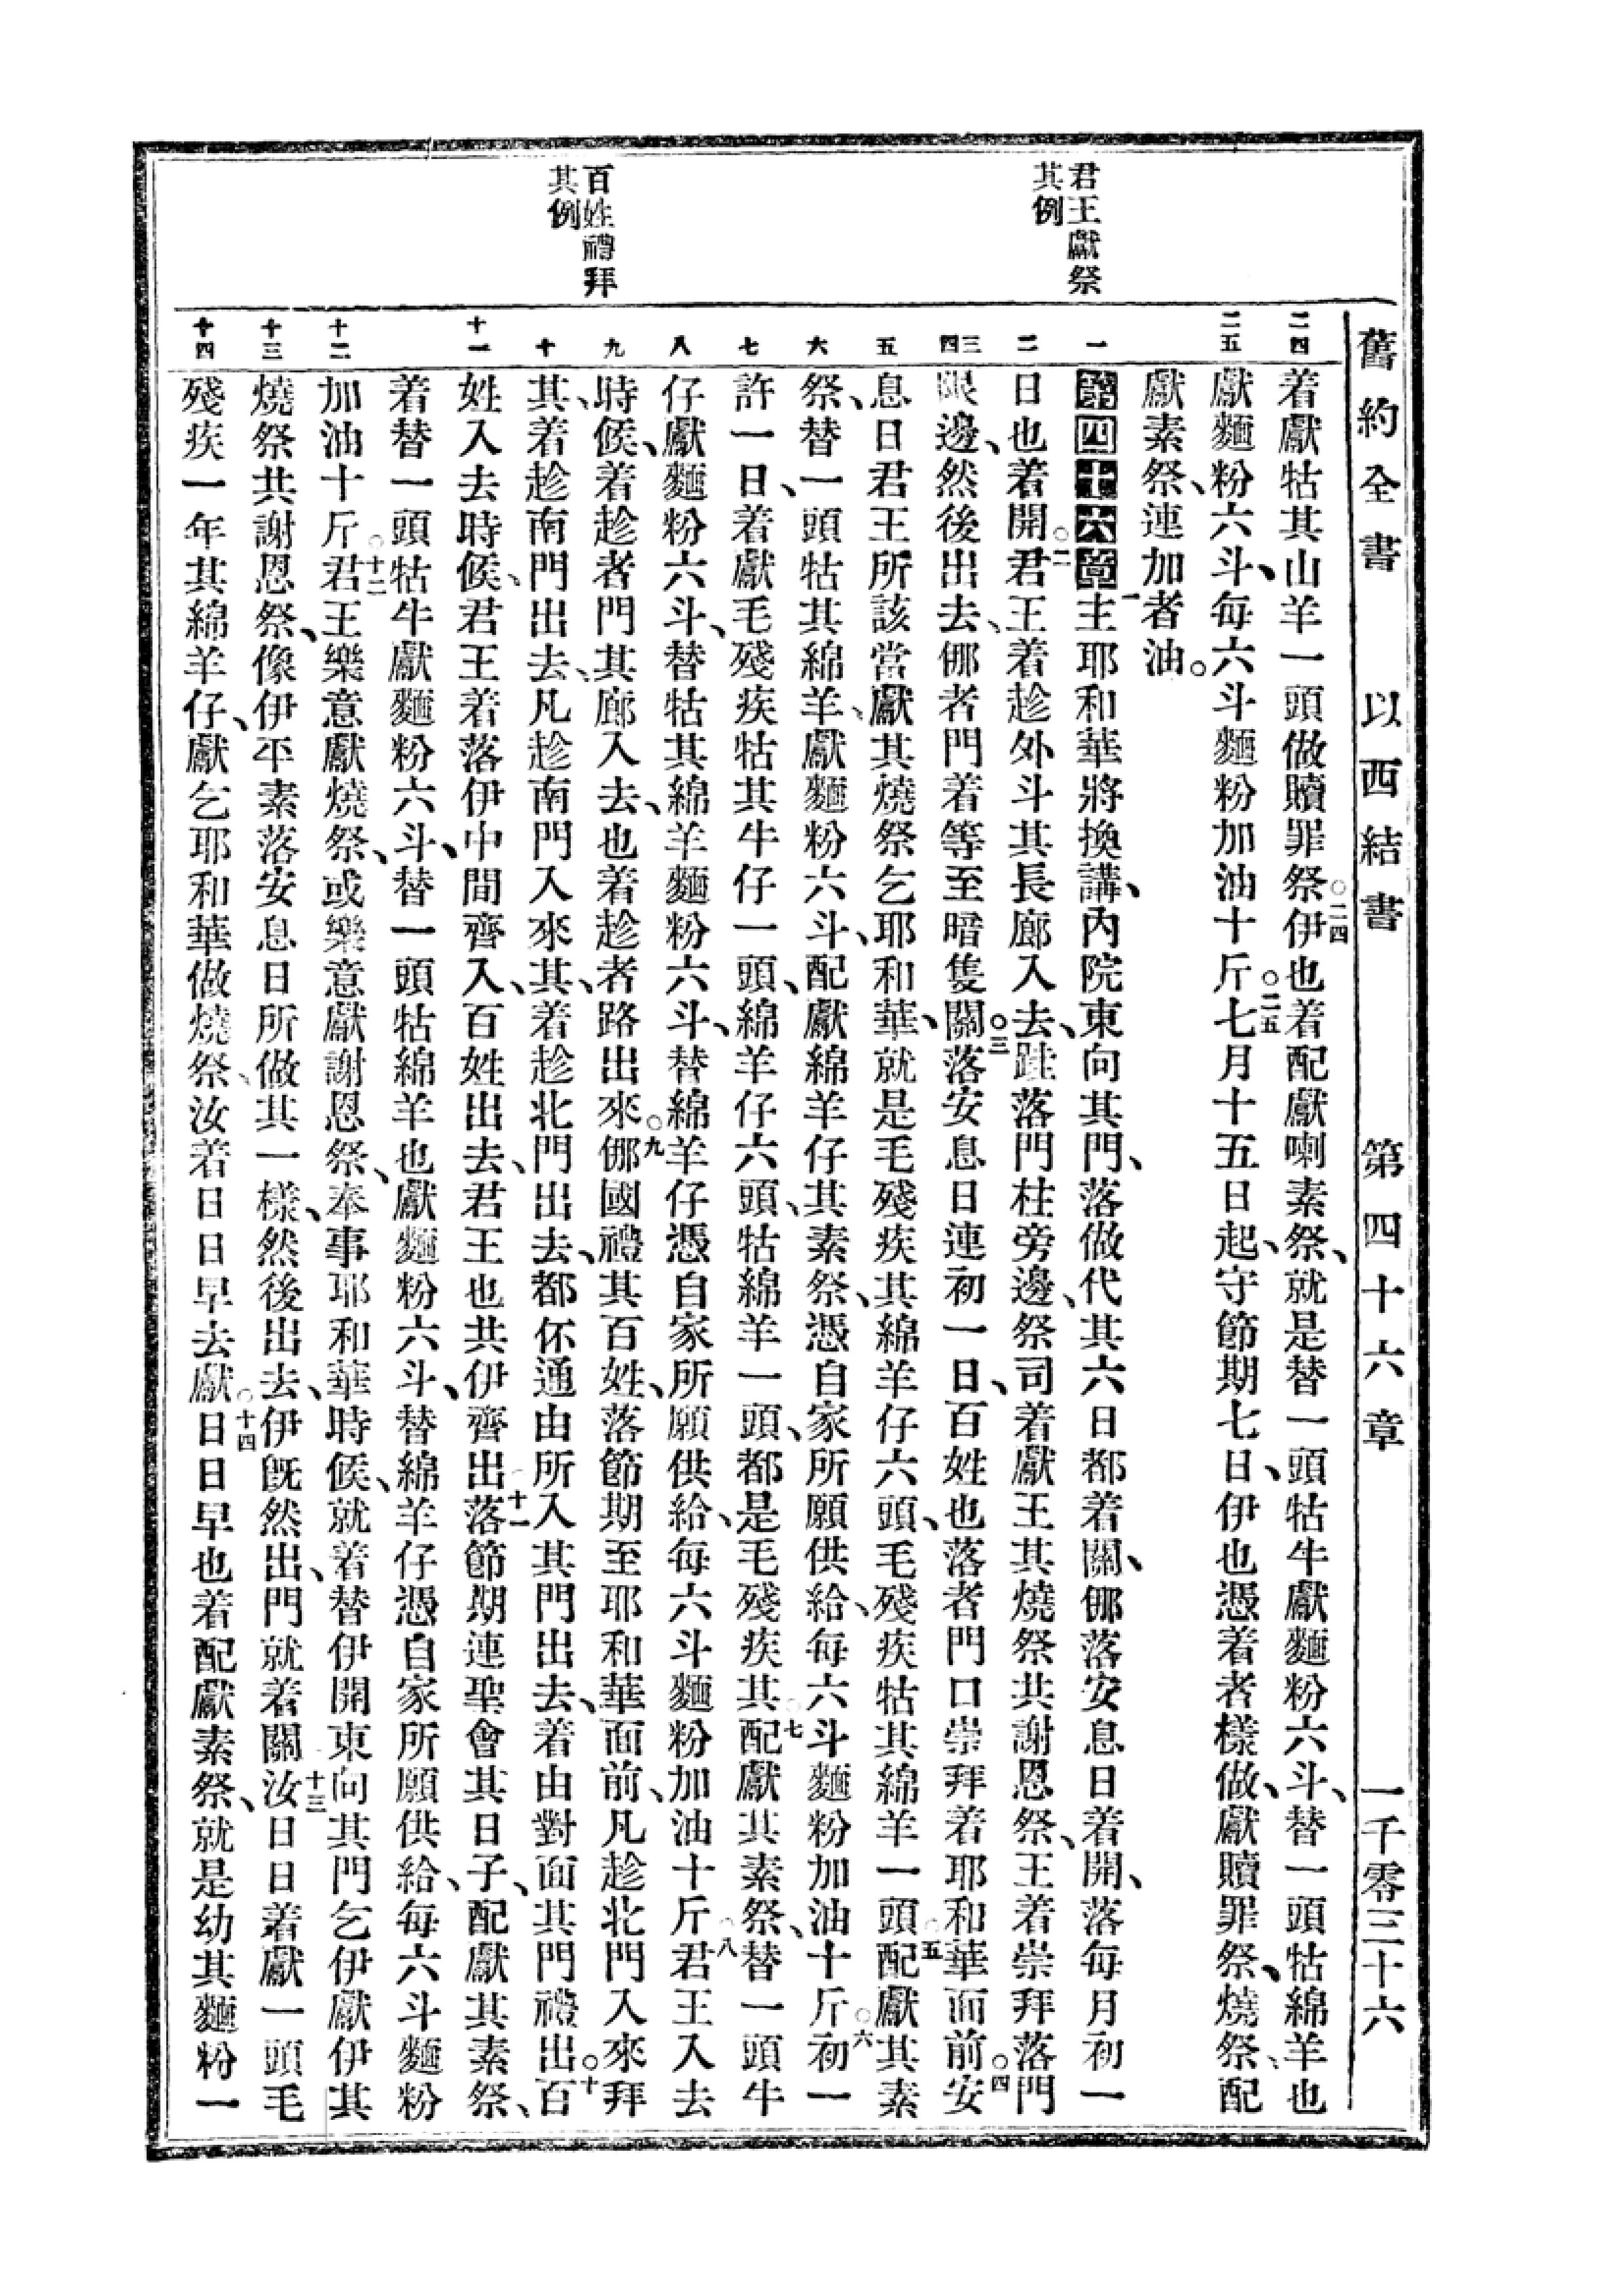 舊約全書 以西結書 第四十六章 一千零三十六
君王獻祭
其例
百姓禮拜
其例
二四 二五 一 二 三 四 五 六 七 八 九 十 十一 十二 十三 十四
着獻牯其山羊一頭做贖罪祭○二四伊也着配獻喇素祭、就是替一頭牯牛獻麵粉六斗、替一頭牯綿羊也
獻麵粉六斗、每六斗麵粉加油十斤○二五七月十五日起、守節期七日、伊也憑着者樣做、獻贖罪祭、燒祭、配
獻素祭、連加者油。
第四十六章 一主耶和華將換講、內院東向其門、落做代其六日都着關、㑚落安息日着開、落每月初一
日也着開○二君王着趁外斗其長廊入去、跬落門柱旁邊、祭司着獻王其燒祭共謝恩祭、王着崇拜落門
限邊、然後出去、㑚者門着等至暗隻關○三落安息日連初一日、百姓也落者門口崇拜着耶和華面前○四安
息日君王所該當獻其燒祭乞耶和華、就是毛殘疾其綿羊仔六頭、毛殘疾牯其綿羊一頭○五配獻其素
祭、替一頭牯其綿羊、獻麵粉六斗、配獻綿羊仔其素祭、憑自家所願供給、每六斗麵粉加油十斤○六初一
許一日、着獻毛殘疾牯其牛仔一頭、綿羊仔六頭、牯綿羊一頭、都是毛殘疾其○七配獻其素祭、替一頭牛
仔獻麵粉六斗、替牯其綿羊麵粉六斗、替綿羊仔憑自家所願供給、每六斗麵粉加油十斤○八君王入去
時候、着趁者門其廊入去、也着趁者路出來○九㑚國禮其百姓、落節期至耶和華面前、凡趁北門入來拜
其、着趁南門出去、凡趁南門入來其、着趁北門出去、都伓通由所入其門出去、着由對面其門禮出○十百
姓入去時候、君王着落伊中間齊入、百姓出去、君王也共伊齊出○十一落節期連聖會其日子、配獻其素祭、
着替一頭牯牛獻麵粉六斗、替一頭牯綿羊也獻麵粉六斗、替綿羊仔憑自家所願供給、每六斗麵粉
加油十斤○十二君王樂意獻燒祭、或樂意獻謝恩祭、奉事耶和華時候、就着替伊開東向其門乞伊獻伊其
燒祭共謝恩祭、像伊平素落安息日所做其一樣、然後出去、伊旣然出、門就着關○十三汝日日着獻一頭毛
殘疾一年其綿羊仔、獻乞耶和華做燒祭、汝着日日早去獻○十四日日早也着配獻素祭、就是幼其麵粉一